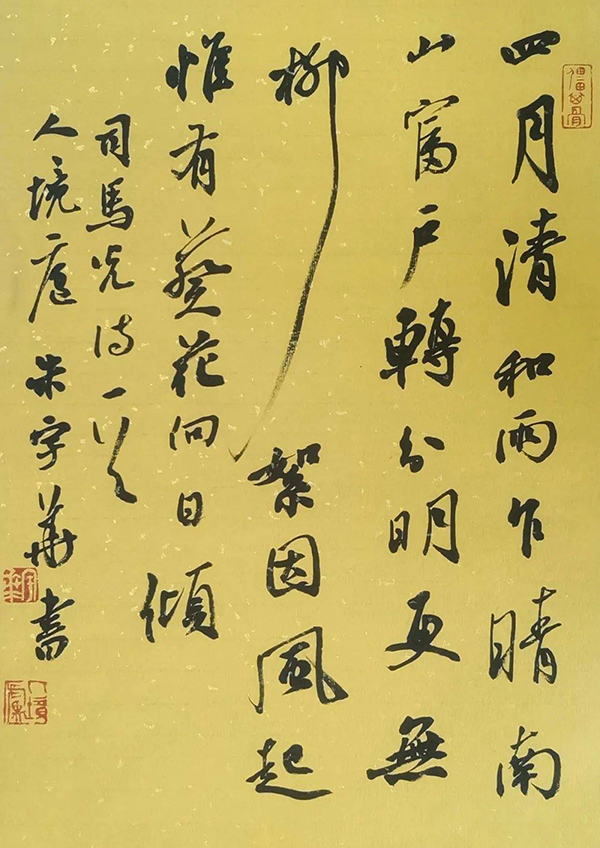 四月清和雨乍晴南
山當户轉分明更無
柳絮因風起
惟有葵花向日傾
司馬光詩一首
人境廬朱宇華書
人境廬